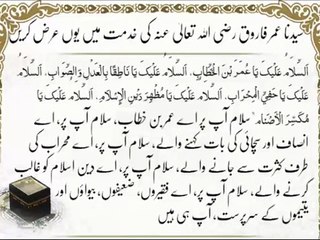 سیدنا عمر فاروق رضی اللہ تعالیٰ عنہ کی خدمت میں یوں عرض کریں
اَلسَّلَامُ عَلَیْکَ یَا عُمَرَ بْنَ الْخَطَّابِ. اَلسَّلَامُ عَلَیْکَ یَا نَاطِقًا بِالْعَدْلِ وَالصَّوَابِ. اَلسَّلَامُ
عَلَیْکَ یَا حَفِیَّ الْمِحْرَابِ. اَلسَّلَامُ عَلَیْکَ یَا مُظْهِرَ دِیْنِ الْاِسْلَامِ. اَلسَّلَامُ عَلَیْکَ یَا
مُکَسِّرَ الْاَصْنَامِ سلام آپ پر اے عمر بن خطاب، سلام آپ پر، اے
انصاف اور سچائی کی بات کہنے والے، سلام آپ پر، اے محراب کی
طرف کثرت سے جانے والے، سلام آپ پر، اے دین اسلام کو غالب
کرنے والے، سلام آپ پر، اے فقیروں، ضعیفوں، بیواؤں اور
یتیموں کے سرپرست، آپ ہی ہیں